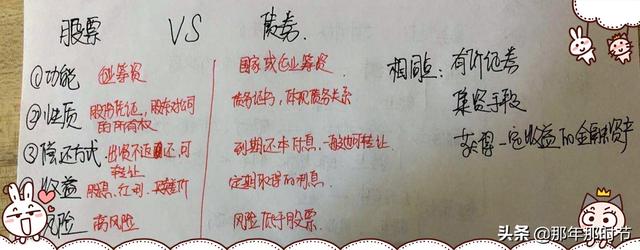 股票 VS 债券
①功能 企业筹资 国家或企业筹资
相同点：有价证券
②性质 股份凭证，股东对公司的所有权 债务证书，体现债务关系
集资手段
③偿还方式 出资不退还，可转让 到期还本付息，一般也可转让
获得一定收益的金融资产
收益 股息、红利 定期取得的利息
风险 高风险 风险低于股票
头条 @那年那时节